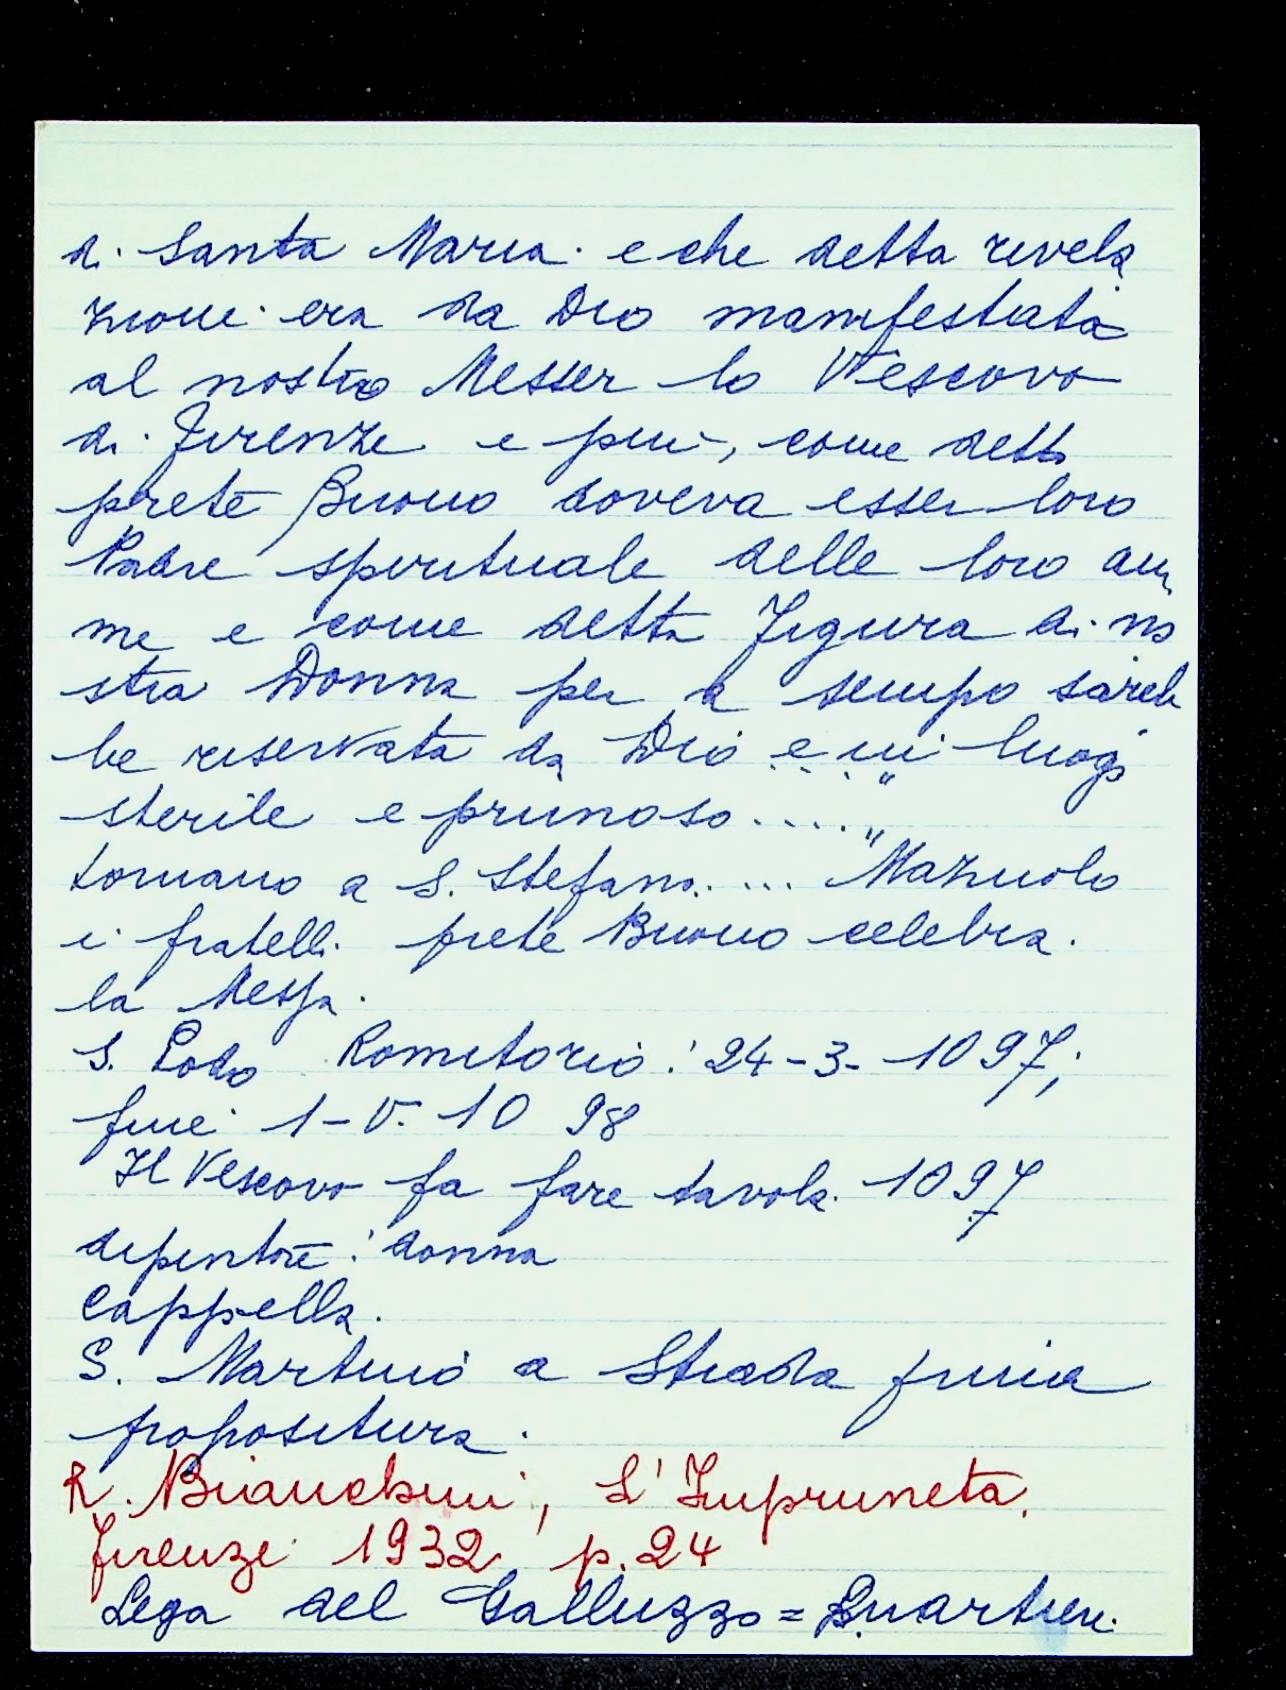 di Santa Maria e che detta rivela
zione era da Dio manifestata
al nostro Messer lo Vescovo
di Firenze e più, come detto
prete Buono doveva esser loro
Padre spirituale delle loro ani
me e come detta Figura di no
stra Donna per a tempo sareb
be riservata da Dio e in luogo
sterile e prunoso....."
tornano a S. Stefano..... "Mazuolo
i fratelli prete Buono celebra
la Messa.
S. Romitorio: 24-3-1097;
fine 1-V-1098
Il Vescovo fa fare tavola 1097
dipintore: donna
Cappella.
S. Martino a Strada prima
propositura.
R. Bianchini, L'Impruneta.
Firenze 1932 p. 24
Lega del Galluzzo = Quartieri